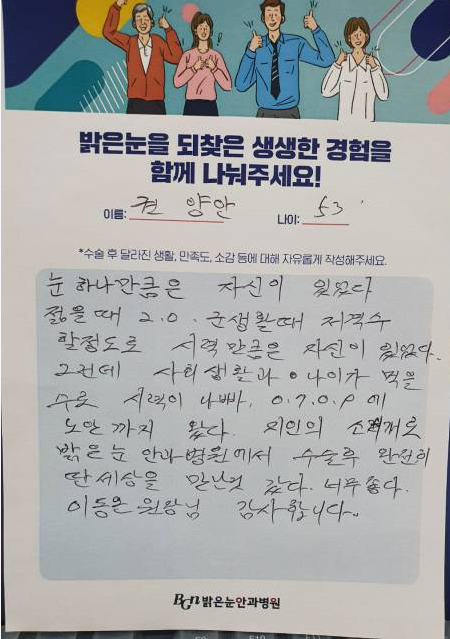 밝은눈을 되찾은 생생한 경험을
함께 나눠주세요!
이름: 권 양안 나이: 53
*수술 후 달라진 생활, 만족도, 소감 등에 대해 자유롭게 작성해주세요.
눈 하나만큼은 자신이 있었다
젊을때 2.0. 군생활때 저격수
할정도로 시력만큼은 자신이 있었다.
그런데 사회생활과 나이가 먹을
수록 시력이 나빠. 0.7 0.9 에
노안까지 왔다. 지인의 소개로
밝은눈 안과병원에서 수술후 완전히
딴세상을 만난것 같다. 너무좋다.
이동은 원장님 감사합니다..
BGN 밝은눈안과병원